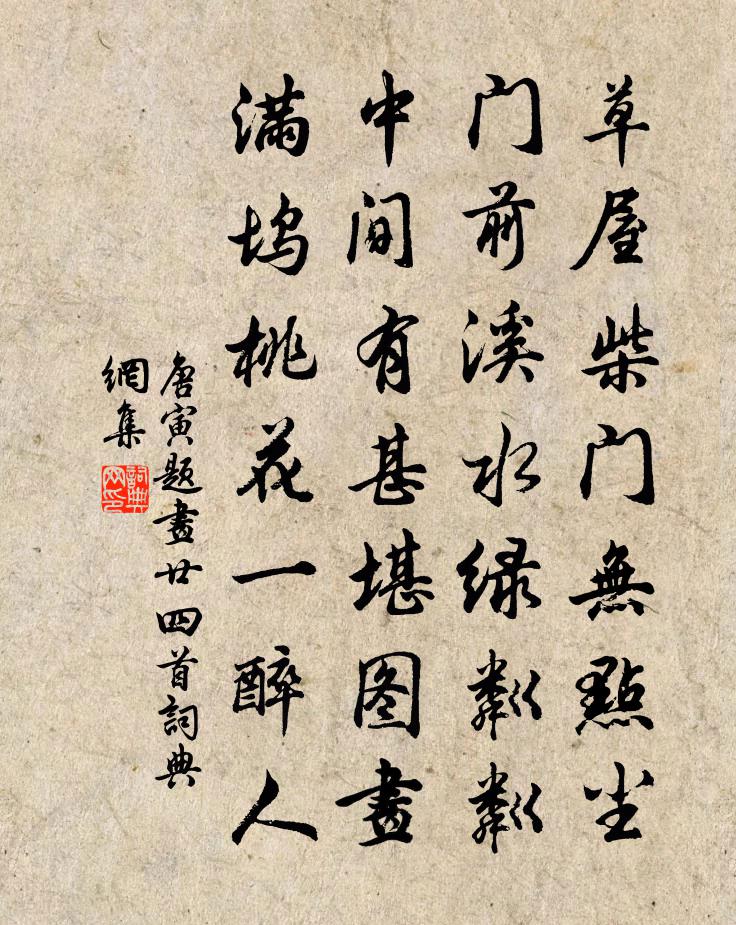 草屋柴門無點尘
門前溪水緑粼粼
中间有甚堪图畫
滿坞桃花一醉人
唐寅题畫廿四首詞典
網集
詞典
网印